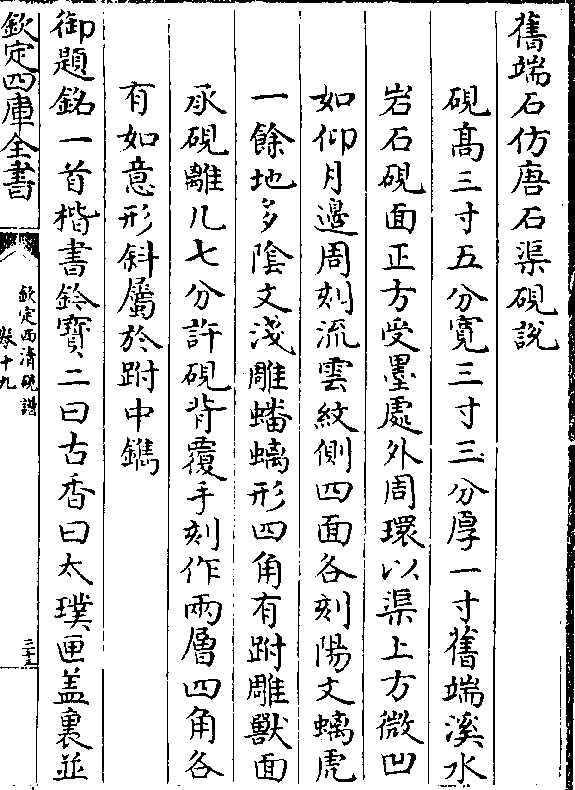 舊端石仿唐石渠硯説
硯髙三寸五分寛三寸三分厚一寸舊端溪水
岩石硯面正方受墨處外周環以渠上方微凹
如仰月邊周刻流雲紋側四面各刻陽文螭虎
一餘地多隂文淺雕蟠螭形四角有跗雕獸面
承硯離几七分許硯背覆手刻作兩層四角各
有如意形斜屬於跗中鐫
御題銘一首楷書鈐寳二曰古香曰太璞匣盖裏並
欽定四庫全書
欽定西清硯譜
卷十九